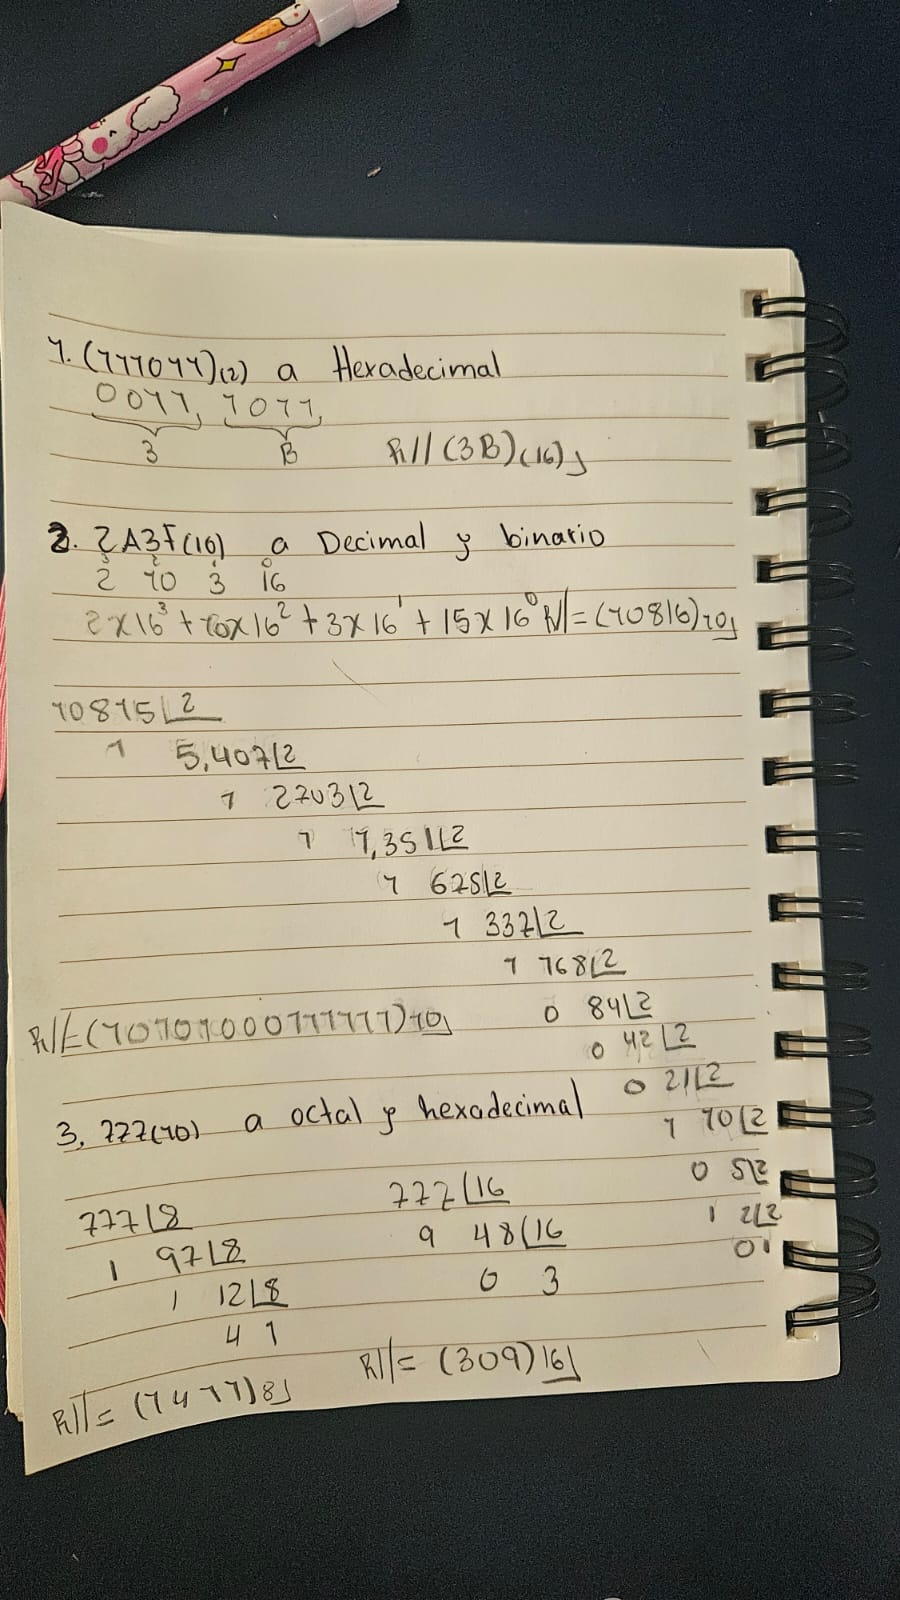 1. (111011)(2) a Hexadecimal
0011 1011
3 B R// (3B)(16)
2. 2A3F(16) a Decimal y binario
3 2 1 0
2 10 3 16
2x16³ + 10x16² + 3x16¹ + 15x16⁰ R//= (10816)10
10815 2
1 5,407 2
1 2703 2
1 1,351 2
1 675 2
1 337 2
1 168 2
0 84 2
0 42 2
0 21 2
1 10 2
0 5 2
1 2 2
0 1
R//= (10101000111111)10
3. 777(10) a octal y hexadecimal
777 8
1 97 8
1 12 8
4 1
R//= (1411)8
777 16
9 48 16
0 3
R//= (309)16